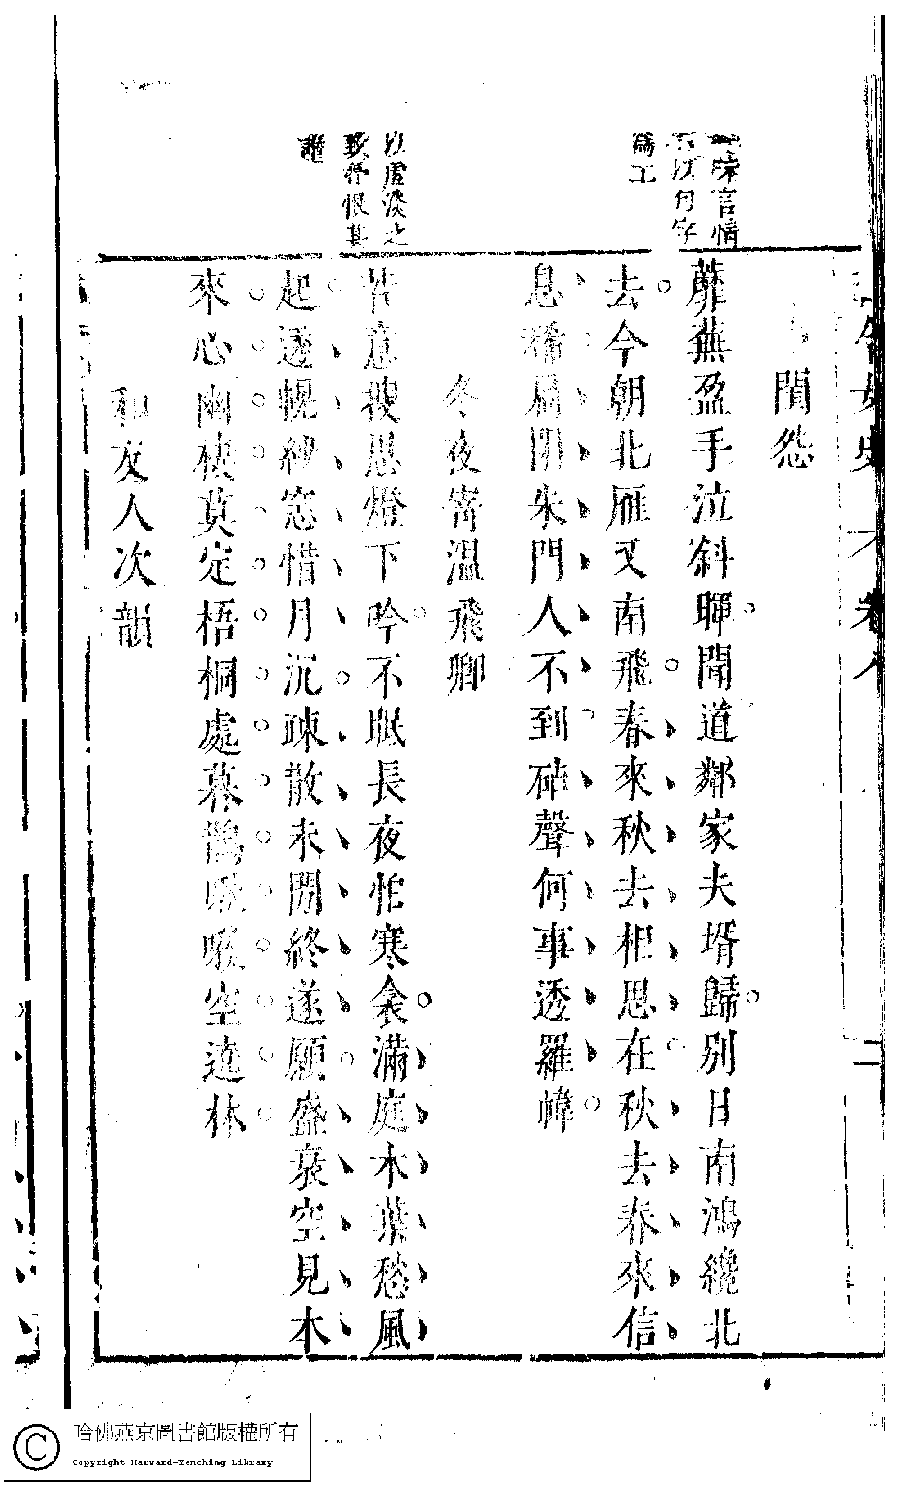 閨怨
蘼蕪盈手泣斜暉聞道鄰家夫壻歸別日南鴻纔北
去今朝北雁又南飛春來秋去相思在秋去春來信
息稀扃閉朱門人不到砧聲何事透羅幃
冬夜寄溫飛卿
苦意搜思燈下吟不眠長夜怕寒衾滿庭木葉愁風
起透幌紗窓惜月沉疎散未閒終遂願盛衰空見本
來心幽棲莫定梧桐處暮鵲啾啾空遶林
和友人次韻
言情
爲工
以虛淡之
致抒恨甚
卷八
二
哈佛燕京圖書館版權所有
Copyright Harvard-Yenching Library